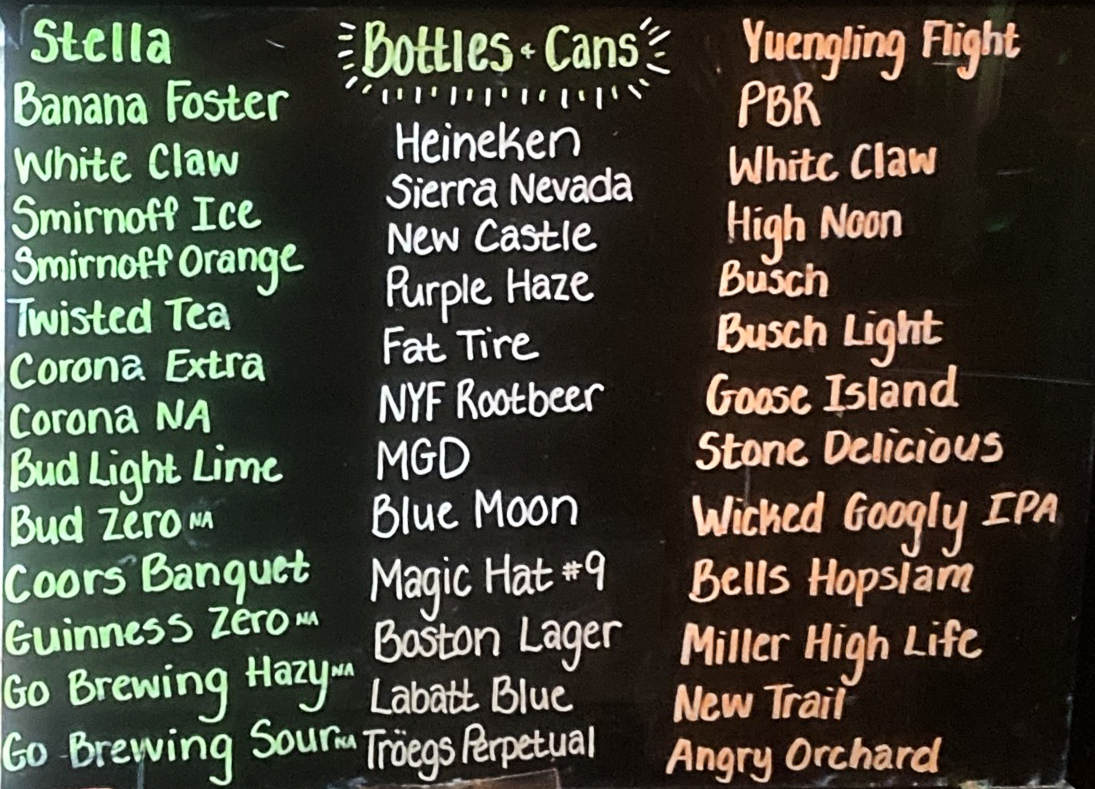 Stella
Banana Foster
White Claw
Smirnoff Ice
Smirnoff Orange
Twisted Tea
Corona Extra
Corona NA
Bud Light Lime
Bud Zero NA
Coors Banquet
Guinness Zero NA
Go Brewing Hazy NA
Go Brewing Sour NA
Bottles + Cans
Heineken
Sierra Nevada
New Castle
Purple Haze
Fat Tire
NYF Rootbeer
MGD
Blue Moon
Magic Hat #9
Boston Lager
Labatt Blue
Tröegs Perpetual
Yuengling Flight
PBR
White Claw
High Noon
Busch
Busch Light
Goose Island
Stone Delicious
Wicked Googly IPA
Bells Hopslam
Miller High Life
New Trail
Angry Orchard